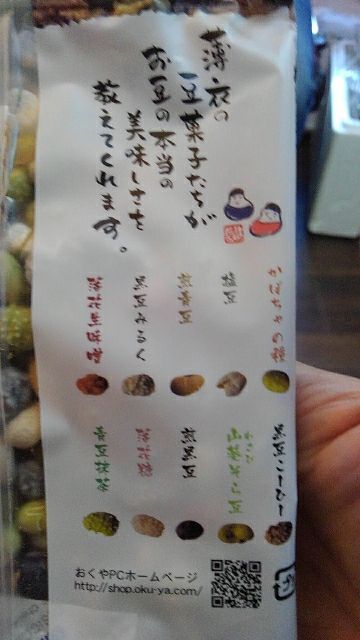 薄衣の
豆菓子たちが
お豆の本当の
美味しさを
教えてくれます。
かぼちゃの種
塩豆
黒豆みるく
落花生味噌
黒豆こーひー
わさび
煎黒豆
青豆抹茶
おくやPCホームページ
http://shop.oku-ya.com/